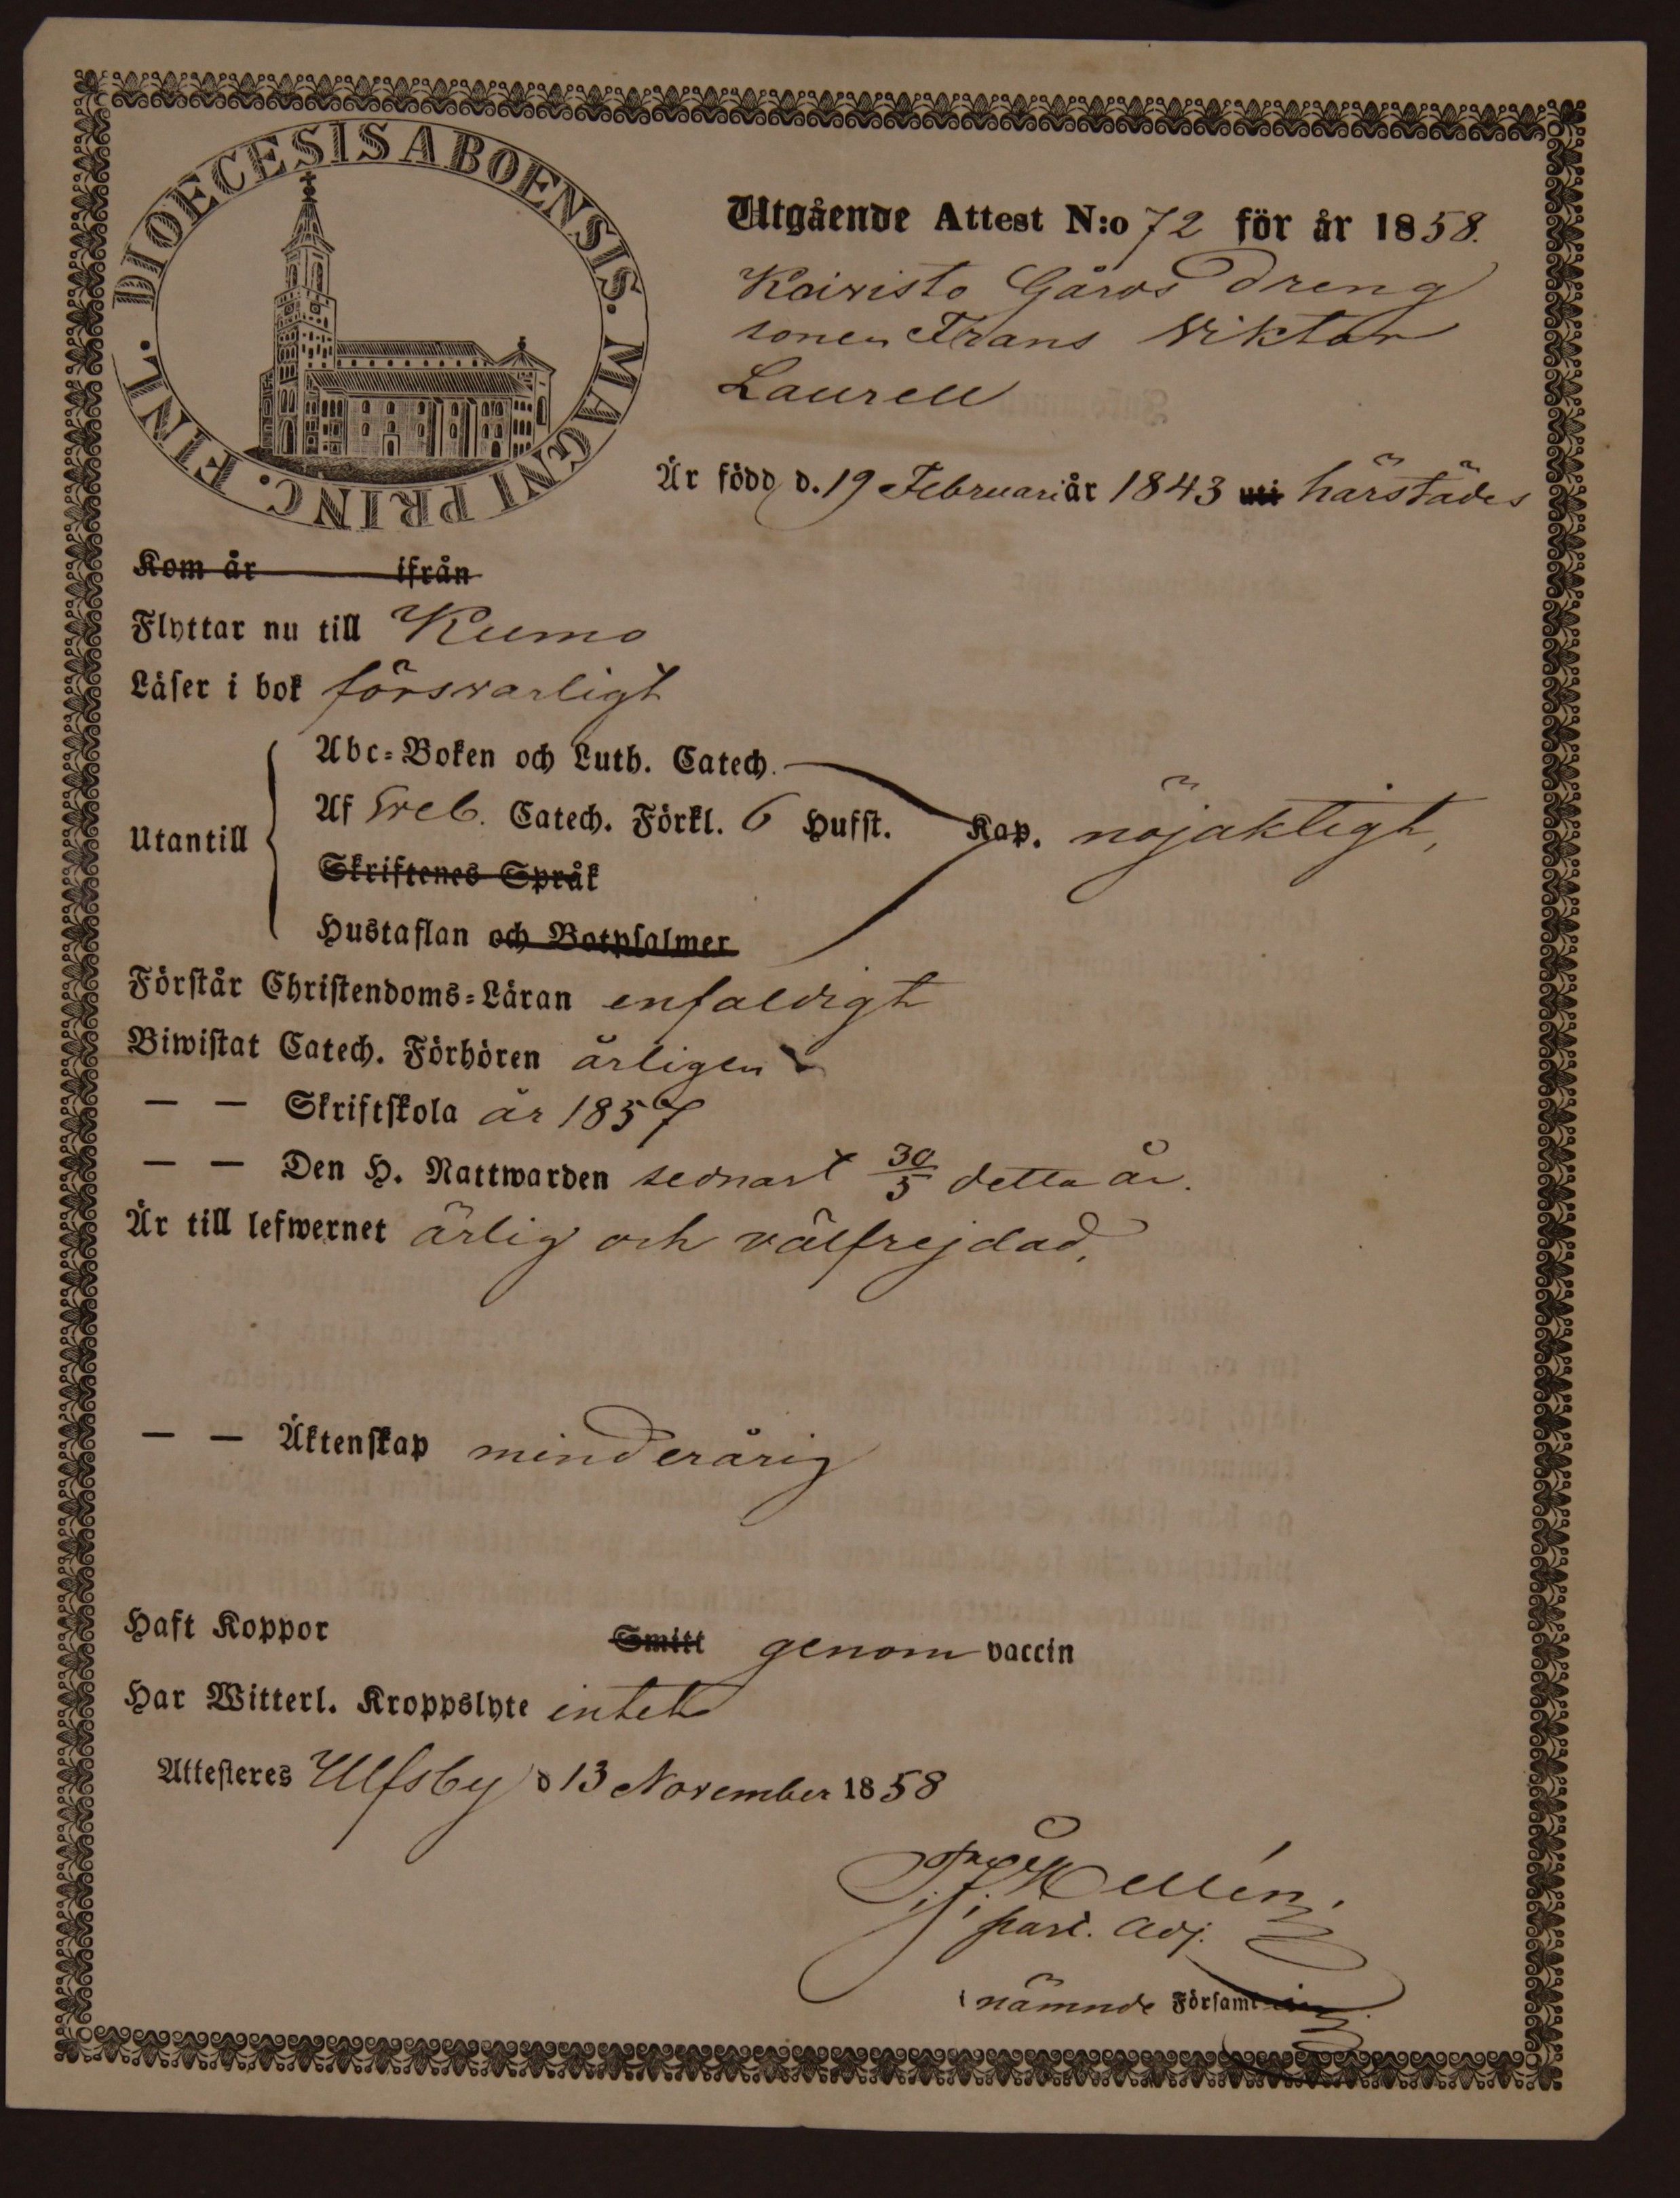 DIOECESIS ABOENSIS. MAGNI PRINC. FINL.
Utgående Attest N:o 72 för år 1858.
Koivisto Gårds Dreng
sonen Frans Viktor
Laurell
Är född d. 19 Februari år 1843 uti härstädes
Kom år ifrån
Flyttar nu till Kumo
Läser i bok försvarligt
Abc-Boken och Luth. Catech.
Utantill
Af Sveb. Catech. Förkl. 6 Hufst. Kap. nöjaktigt,
Skriftenes Språk
Hustaflan och Botpsalmer
Förstår Christendoms-Läran enfaldigt
Biwistat Catech. Förhören årligen
— — Skriftskola år 1857
— — Den H. Nattwarden sednast 30/5 detta år.
Är till lefwernet ärlig och välfrejdad,
— — Äktenskap minderårig
Haft Koppor Smitt genom vaccin
Har Witterl. Kroppslyte intet
Attesteras Ulfsby d 13 November 1858
Hellén,
past. adj.
i nämnde Församl